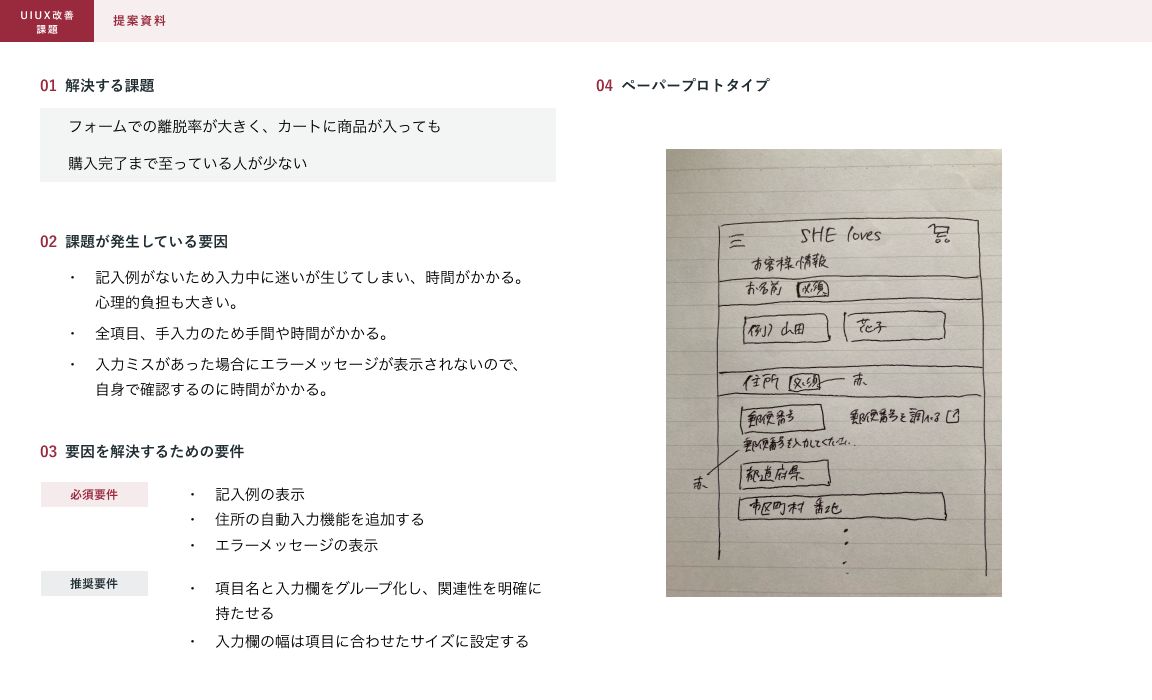 UIUX改善
課題
提案資料
01 解決する課題
フォームでの離脱率が大きく、カートに商品が入っても
購入完了まで至っている人が少ない
02 課題が発生している要因
・ 記入例がないため入力中に迷いが生じてしまい、時間がかかる。
心理的負担も大きい。
・ 全項目、手入力のため手間や時間がかかる。
・ 入力ミスがあった場合にエラーメッセージが表示されないので、
自身で確認するのに時間がかかる。
03 要因を解決するための要件
必須要件
・ 記入例の表示
・ 住所の自動入力機能を追加する
・ エラーメッセージの表示
推奨要件
・ 項目名と入力欄をグループ化し、関連性を明確に
持たせる
・ 入力欄の幅は項目に合わせたサイズに設定する
04 ペーパープロトタイプ
SHE loves
お客様情報
お名前 必須
例) 山田 花子
住所 必須 赤
郵便番号 郵便番号を調べる
郵便番号を入力してください。
赤
都道府県
市区町村 番地